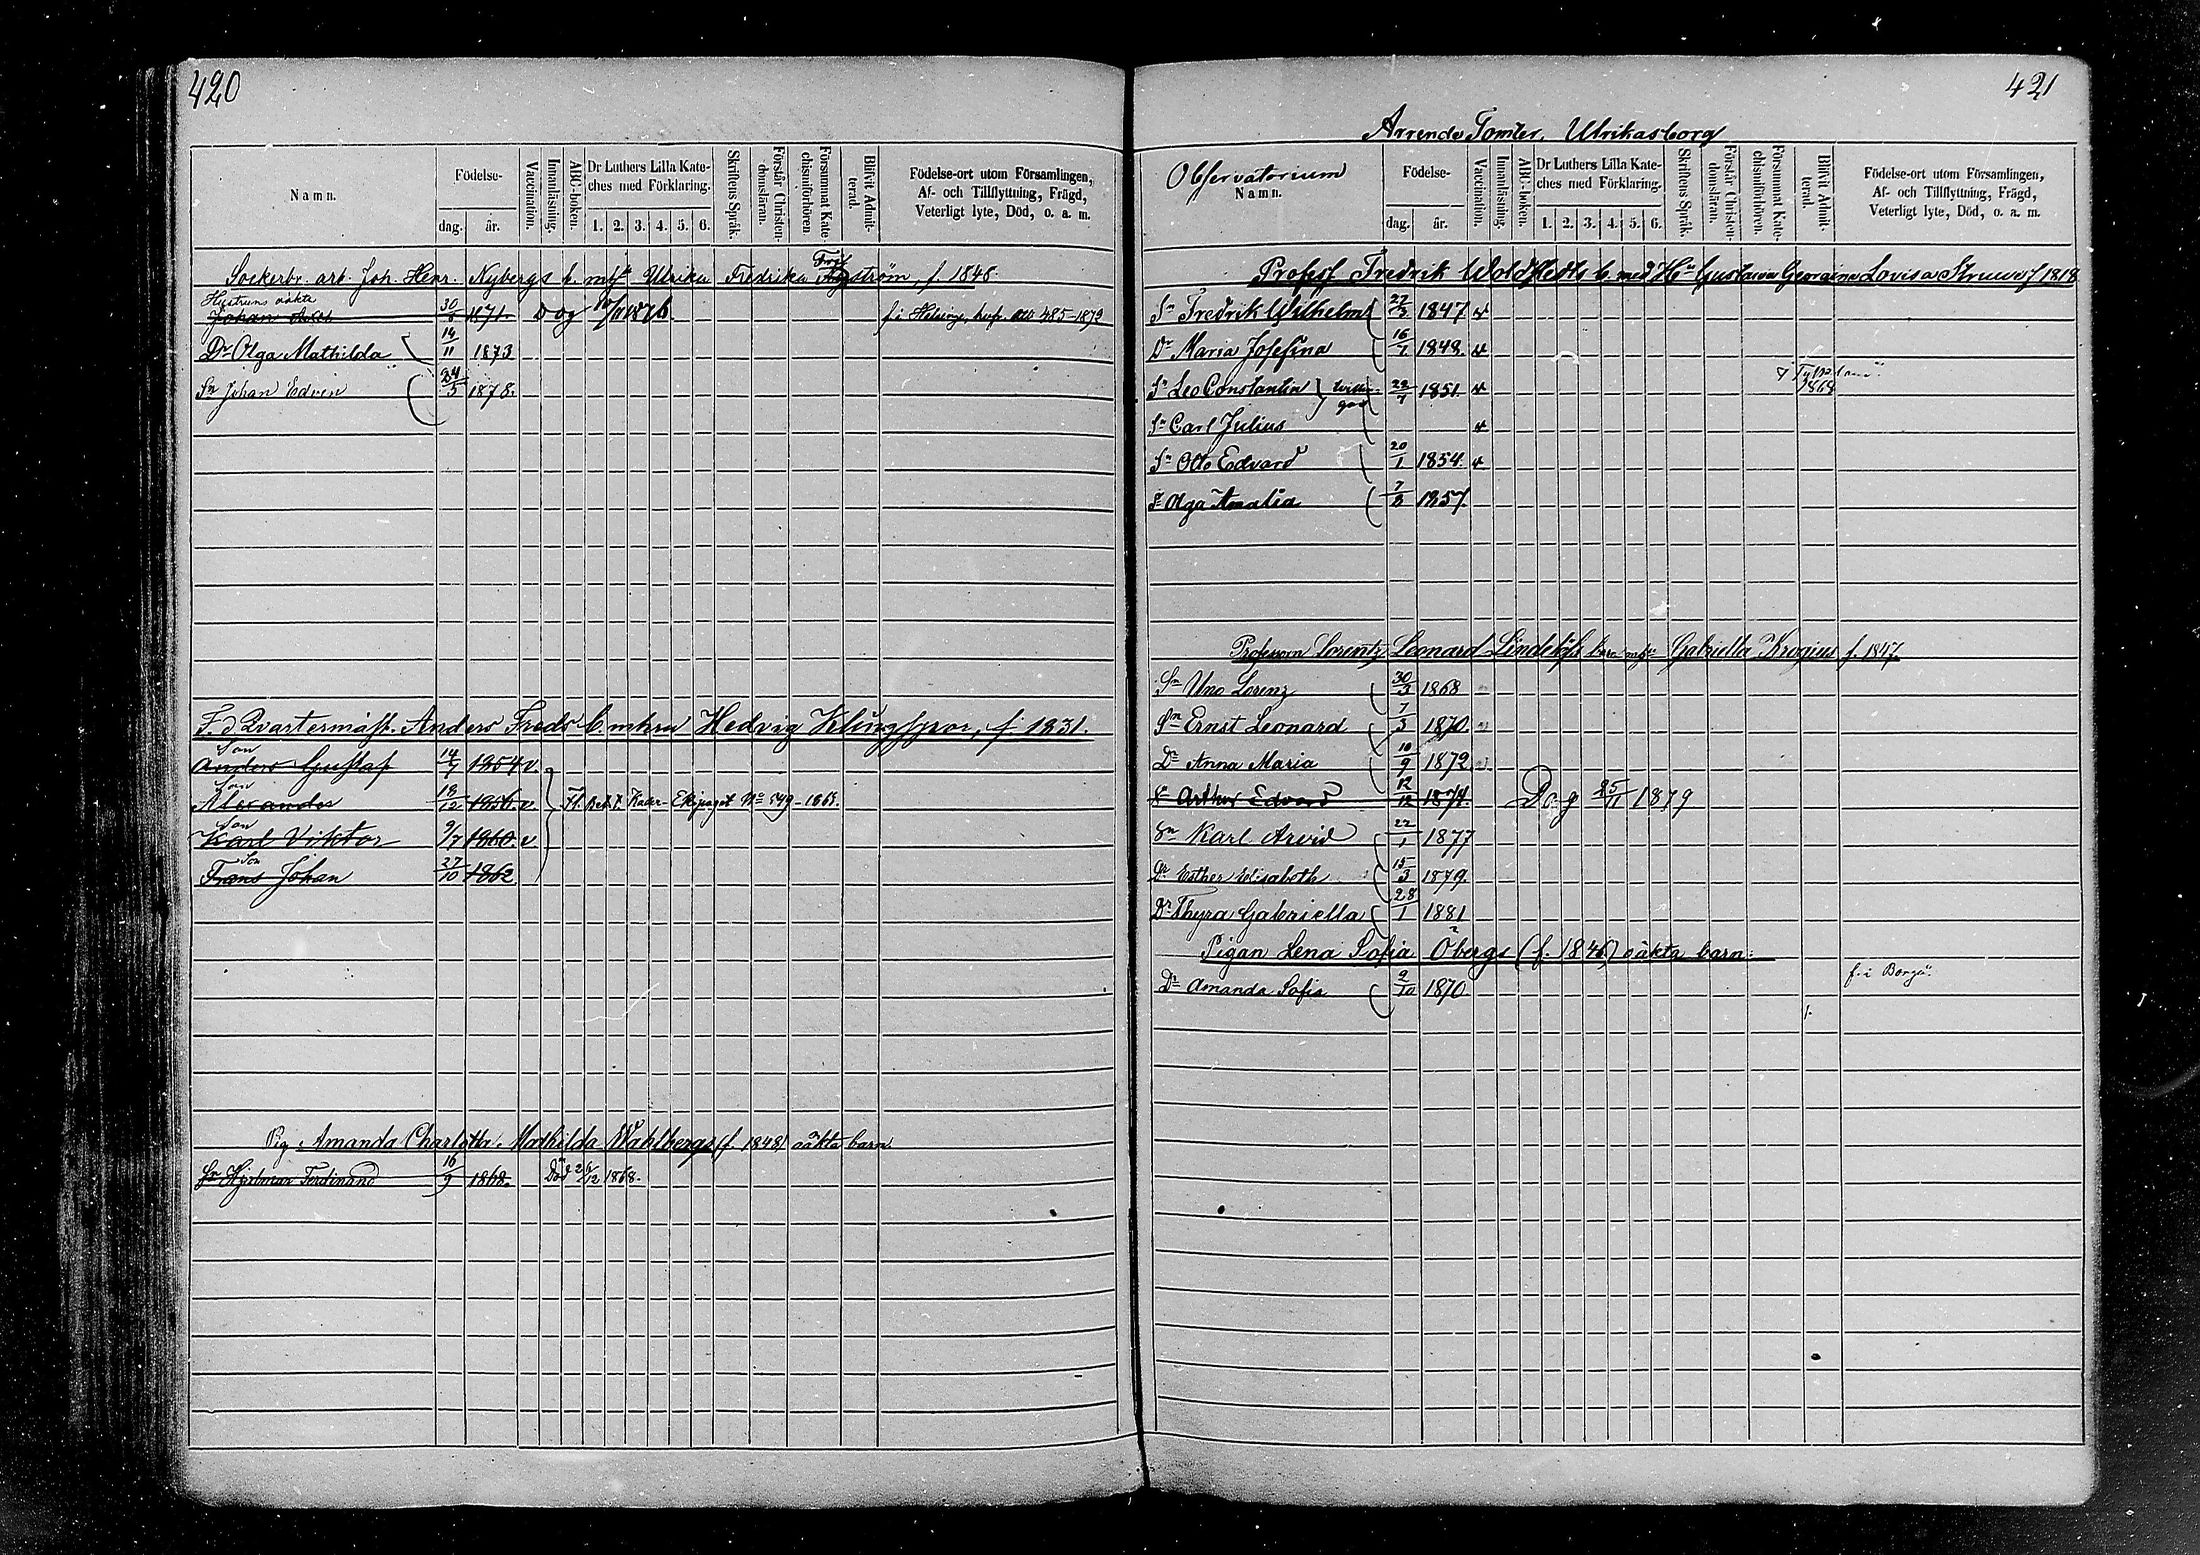 420
Namn.
Födelse-
dag. år.
Vaccination.
Innanläsning.
ABC-boken.
Dr Luthers Lilla Kate-
ches med Förklaring.
1. 2. 3. 4. 5. 6.
Skriftens Språk.
Förstår Christen-
domsläran.
Försummat Kate-
chismiförhören.
Blifvit Admit-
terad.
Födelse-ort utom Församlingen,
Af- och Tillflyttning, Frägd,
Veterligt lyte, Död, o. a. m.
Sockerbr. arb. Joh. Henr. Nybergs b. m. Ulrika Fredrika ström, f. 1848
Hustruns oäkta
Johan Axel 30/8 1871. Dog 1876. f. i Helsinge, 485-1872
Dr Olga Mathilda 14/11 1873
Sn Johan Edvin 24/5 1878.
F. d. Qvartermäst. Anders Freds b. m. hu Hedvig Klingspor, f. 1831.
Son
Anders Gustaf 14/7 1854 v.
Son
Alexander 18/12 1856. v
Fl. Bet. t. Kader-Ekipaget No 549-1865.
Son
Karl Viktor 9/7 1860. v
Son
Frans Johan 27/10 1862.
Pig. Amanda Charlotta Mathilda Wahlbergs (f. 1848) oäkta barn
Sn Hjalmar Ferdinand 16/9 1868. Död 26/12 1868.
421
Arrende Tomter. Ulrikasborg
Observatorium
Namn.
Födelse-
dag. år.
Vaccination.
Innanläsning.
ABC-boken.
Dr Luthers Lilla Kate-
ches med Förklaring.
1. 2. 3. 4. 5. 6.
Skriftens Språk.
Förstår Christen-
domsläran.
Försummat Kate-
chismiförhören.
Blifvit Admit-
terad.
Födelse-ort utom Församlingen,
Af- och Tillflyttning, Frägd,
Veterligt lyte, Död, o. a. m.
Profess. Fredrik Woldstedts b. med Hu Gustava Georgina Lovisa Struve f. 1818
Sn Fredrik Wilhelm 27/3 1847. v
Dr Maria Josefina 16/7 1848. v
Sn Leo Constantin 22/7 1851. v 1868
Sn Carl Julius v
Sn Otto Edvard 20/1 1854. v
Dr Olga Amalia 7/8 1857.
Professorn Lorentz Leonard Lindelöfs barn m. hu Gabriella Krogius f. 1847.
Sn Uno Lorenz 30/3 1868
Sn Ernst Leonard 7/3 1870.
Dr Anna Maria 10/9 1872.
Sn Arthur Edvard 12/12 1874. Dog 25/11 1879
Sn Karl Arvid 22/1 1877
Dr Esther Elisabeth 15/3 1879.
Dr Thyra Gabriella 28/1 1881
Pigan Lena Sofia Öbergs (f. 1846) oäkta barn:
Dr Amanda Sofia 9/10 1870 f. i Borgå.